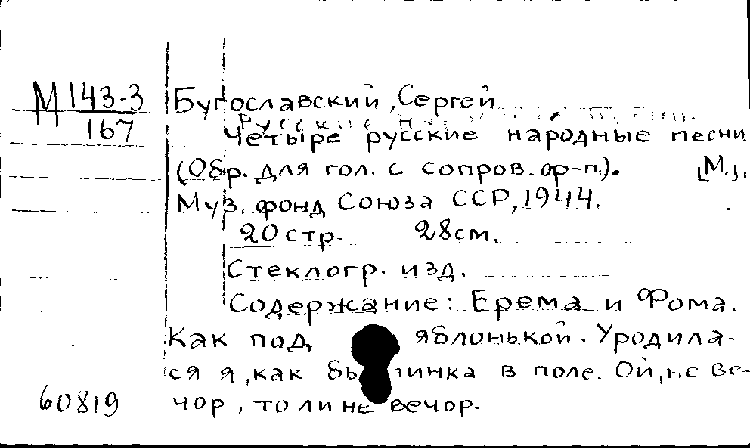 М 143-3
167
Бугославский, Сергей
Четыре русские народные песни
(Обр. для гол. с сопров. ф-п). [М.],
Муз. фонд Союза ССР, 1944.
20 стр. 28 см.
Стеклогр. изд.
Содержание: Ерема и Фома.
Как под яблонькой. Уродила-
ся я, как былинка в поле. Ой, не ве-
чор, то ли не вечор.
60819